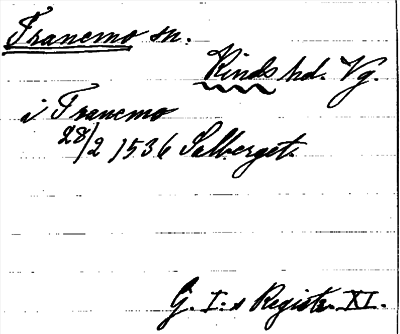 Tranemo sn.
Kinds hd. Vg.
i Tranemo
28/2 1536 Salberget
G. I:s Registr. XI.